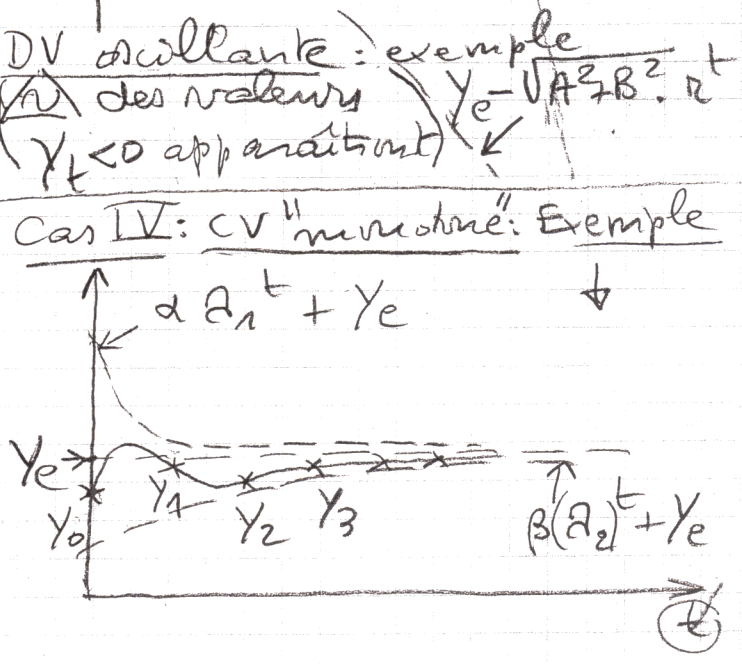 DV oscillante : exemple
(⚠ des valeurs
Yₑ - √(A²+B²) . r^t
Y_t < 0 apparaîtront)
Cas IV : CV "monotone" : Exemple
α λ₁^t + Yₑ
Yₑ
Y₀
Y₁
Y₂
Y₃
β(λ₂)^t + Yₑ
t